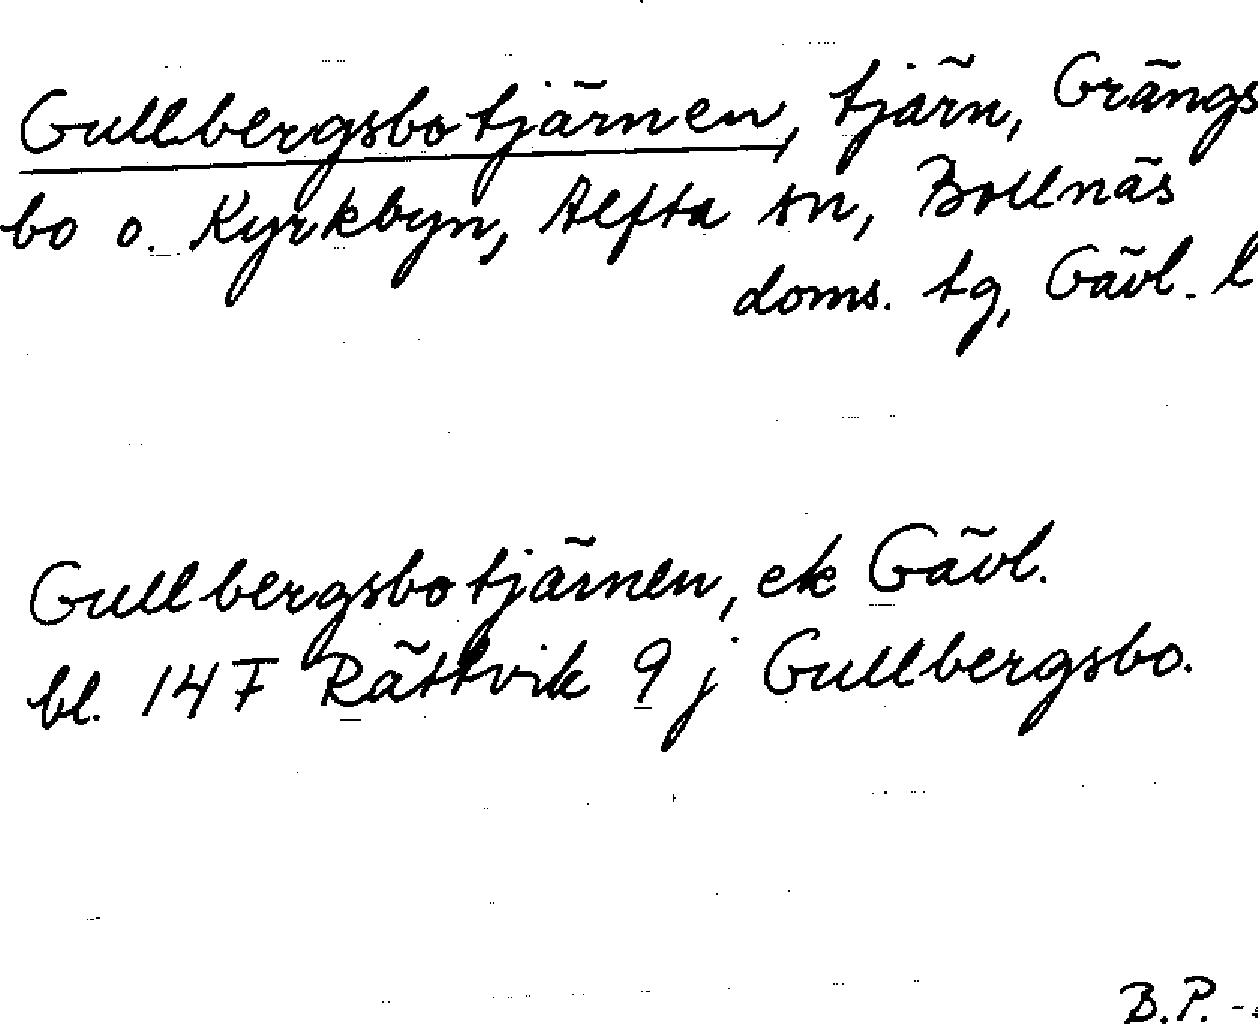 Gullbergsbotjärnen, tjärn, Grängs
bo o. Kyrkbyn, Alfta sn, Bollnäs
doms. tg, Gävl. l
Gullbergsbotjärnen, ek Gävl.
bl. 14 F Rättvik 9 j Gullbergsbo.
B.P. -